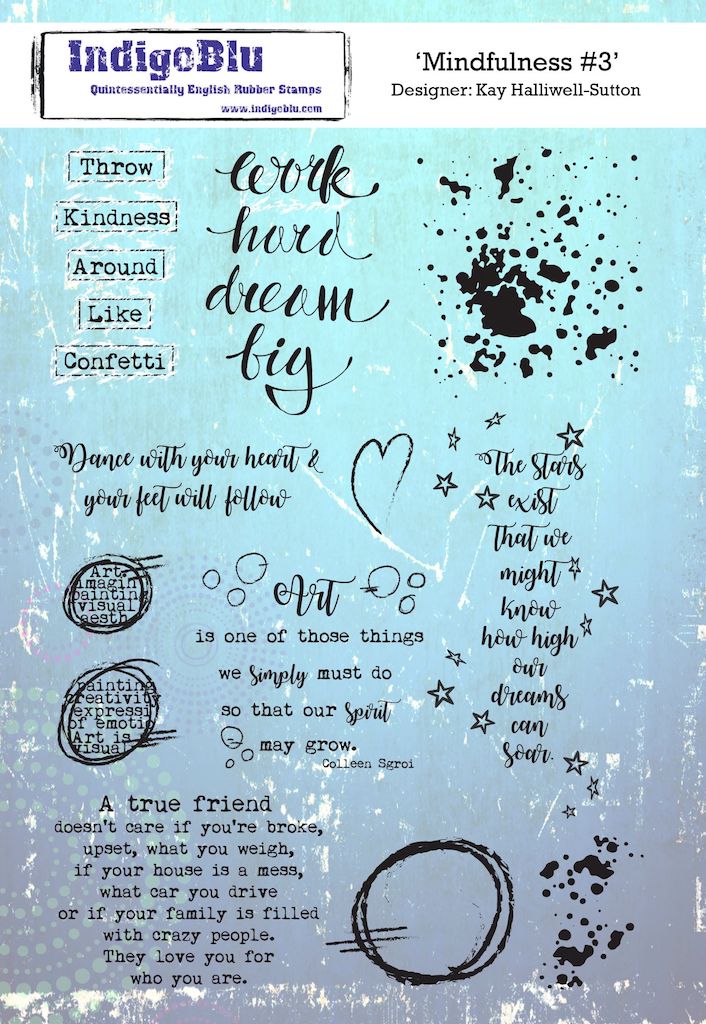 IndigoBlu
Quintessentially English Rubber Stamps
www.indigoblu.com
‘Mindfulness #3’
Designer: Kay Halliwell-Sutton
Throw
Kindness
Around
Like
Confetti
work
hard
dream
big
Dance with your heart &
your feet will follow
The stars
exist
that we
might
know
how high
our
dreams
can
soar.
Art
imagin
painting
visual
aesth
painting
creativity
expressi
of emotio
Art is a
visual
Art
is one of those things
we simply must do
so that our spirit
may grow.
Colleen Sgroi
A true friend
doesn't care if you're broke,
upset, what you weigh,
if your house is a mess,
what car you drive
or if your family is filled
with crazy people.
They love you for
who you are.